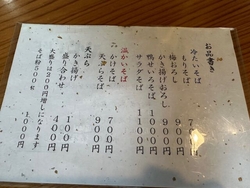 お品書き
冷たいそば
もりそば
梅おろし 900円
かき揚げおろし 900円
鴨せいろそば 1100円
サラダそば
温かいそば
かけそば
天ぷらそば 900円
天ぷら
かき揚げ
盛り合わせ 400円
大盛りは200円増しになります
そば粉500g 1000円